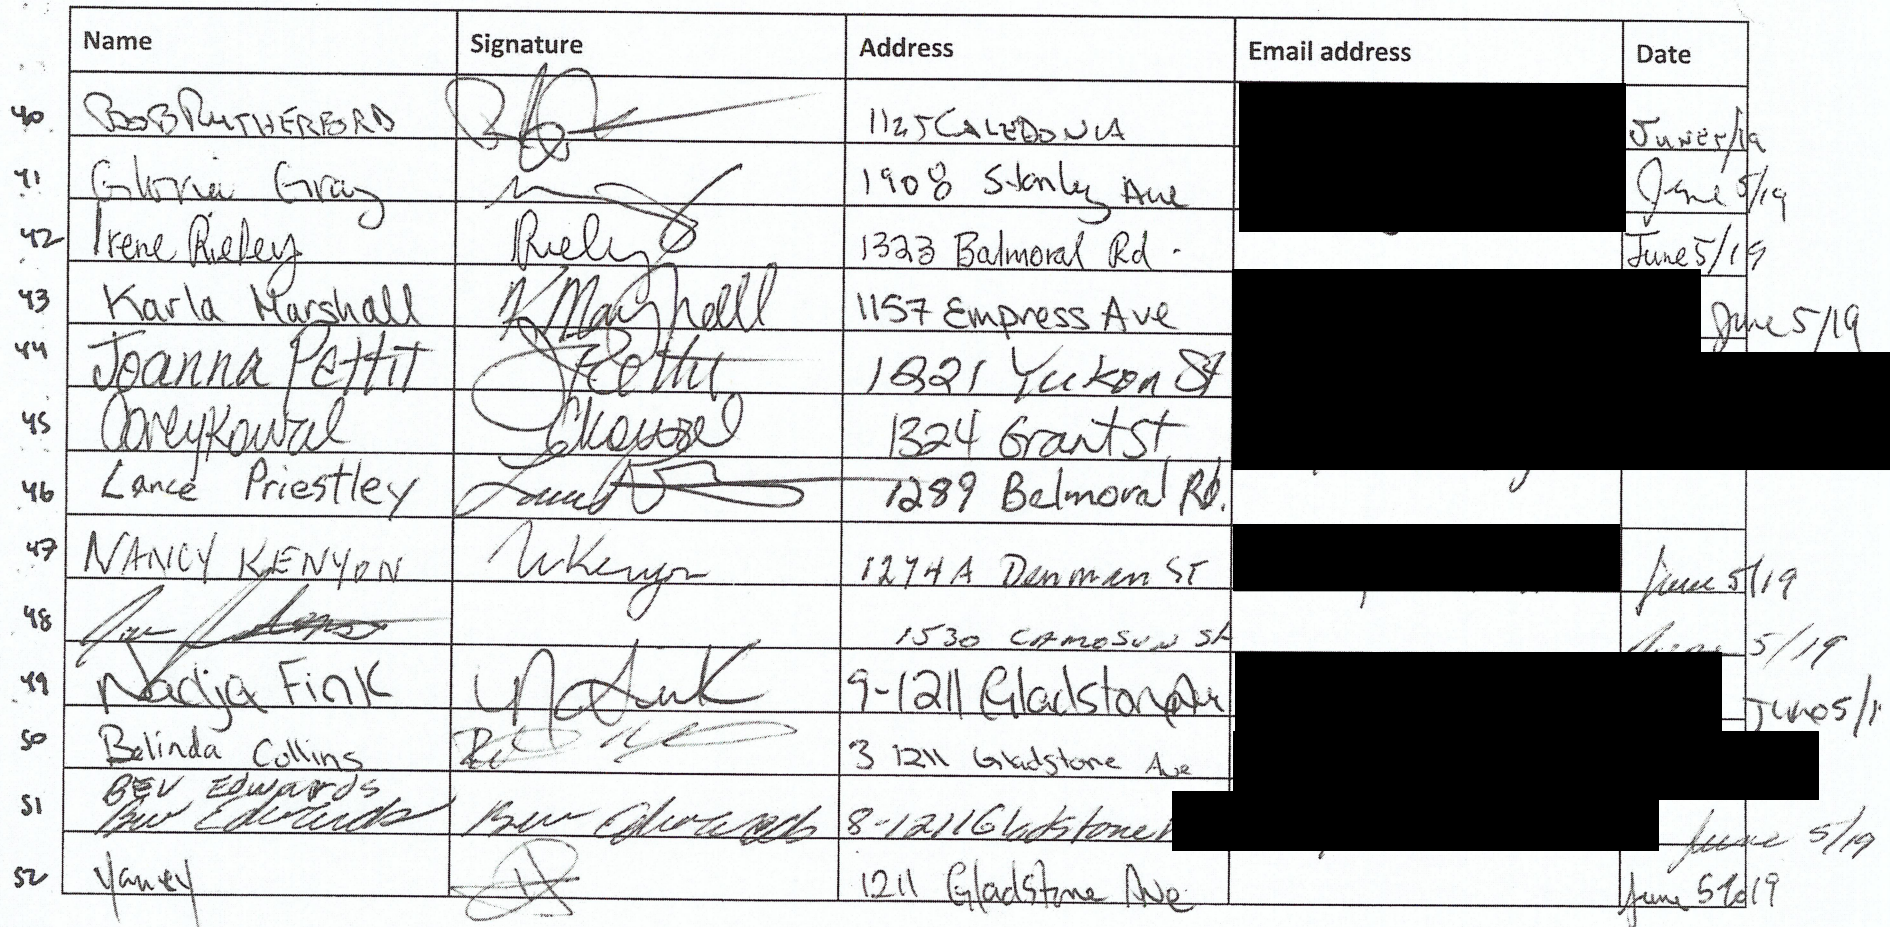 Name Signature Address Email address Date
40 BOB RUTHERFORD 1125 CALEDONIA June 5/19
41 Gloria Gray 1908 Stanly Ave June 5/19
42 Irene Rieley Riely 1323 Balmoral Rd. June 5/19
43 Karla Marshall K Marshall 1157 Empress Ave June 5/19
44 Joanna Pettit J Pettit 1821 Yukon St
45 Corey Kowal CKowal 1324 Grant St
46 Lance Priestley Lance 1289 Balmoral Rd.
47 NANCY KENYON NKenyon 1274A Denman ST June 5/19
48 1530 CAMOSUN St June 5/19
49 Nadja Fink N Fink 9-1211 Gladstone Av June 5/1
50 Belinda Collins 3 1211 Gladstone Ave
BEV EDWARDS
51 Bev Edwards Bev Edwards 8-1211 Gladstone June 5/19
52 Yancy 1211 Gladstone Ave June 5 2019